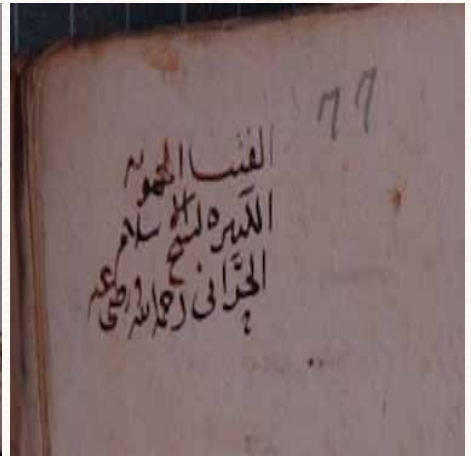 77
الفتيا الحموية
الكبيرة لشيخ الاسلام
الحراني رحمه الله ورضي عنه